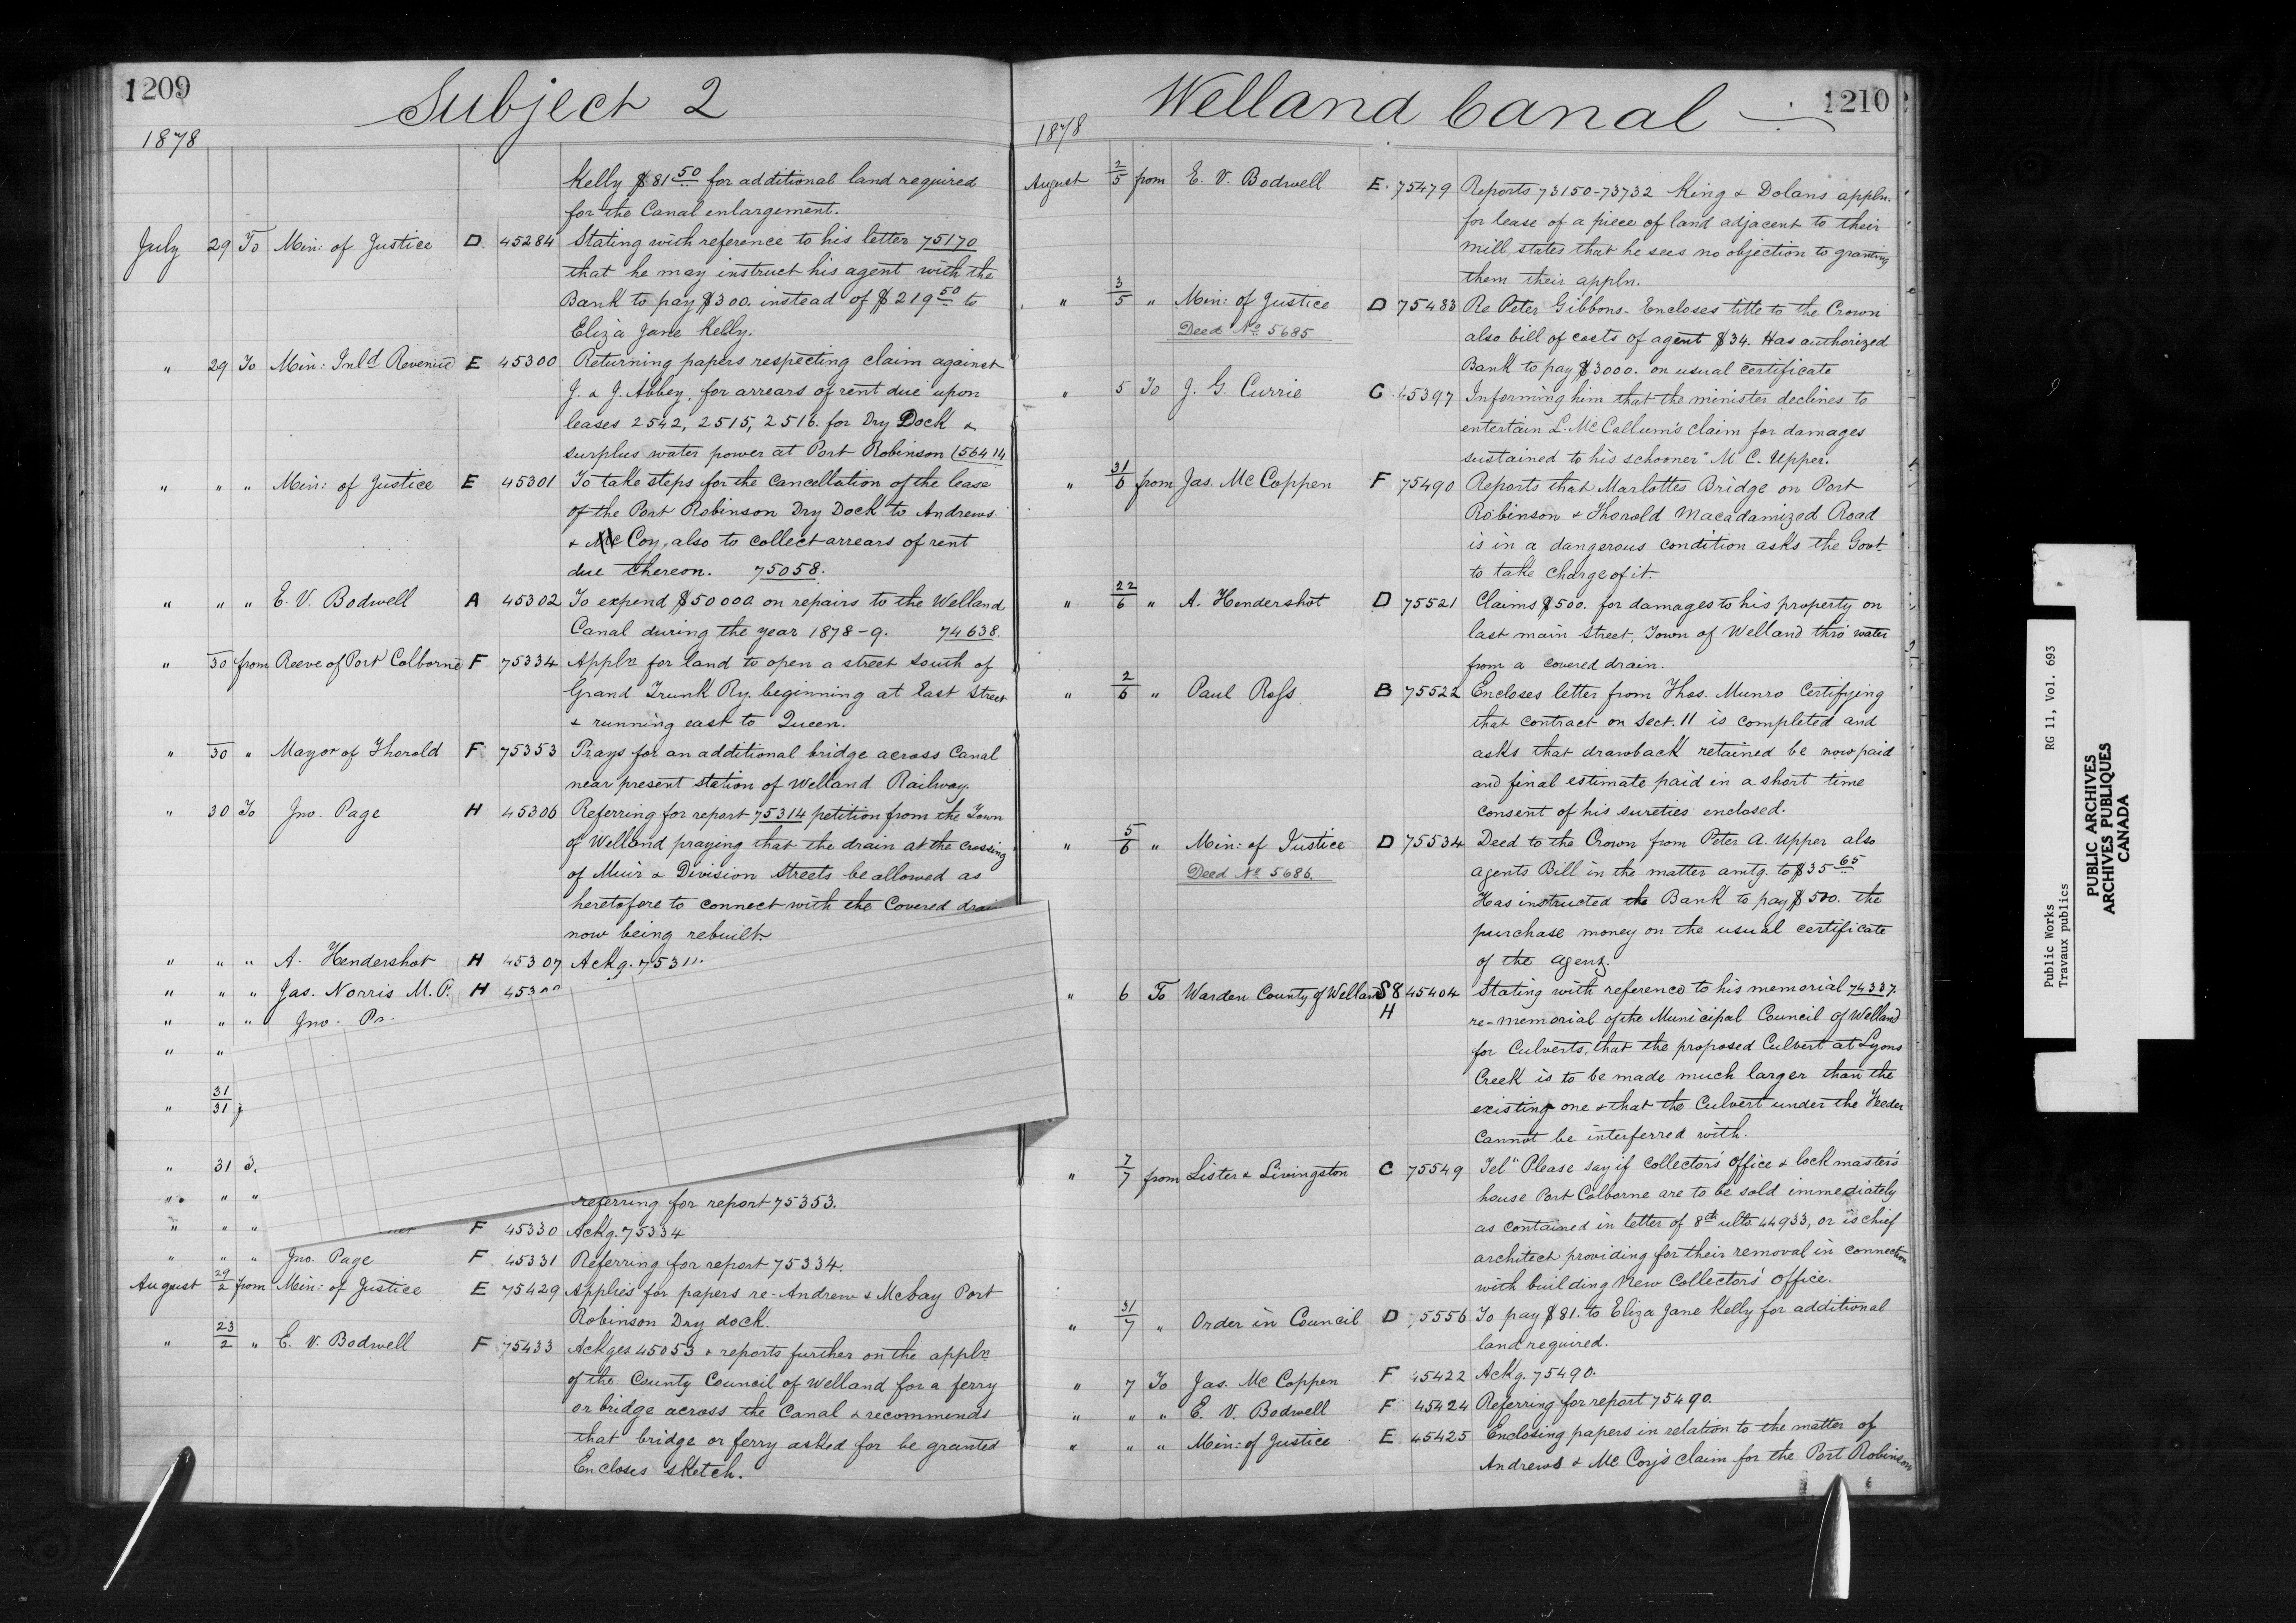 1209
Subject 2
1878
Kelly $81 50 for additional land required
for the Canal enlargement.
July 29 To Min: of Justice D. 45284 Stating with reference to his letter 75170
that he may instruct his agent with the
Bank to pay $300. instead of $219 50 to
Eliza Jane Kelly.
" 29 To Min: Inld Revenue E 45300 Returning papers respecting claim against
J. & J. Abbey, for arrears of rent due upon
leases 2542, 2515, 2516. for Dry Dock &
surplus water power at Port Robinson (56414
" " " Min: of Justice E 45301 To take steps for the Cancellation of the lease
of the Port Robinson Dry Dock to Andrews
& Mc Coy, also to collect arrears of rent
due thereon. 75058.
" " " E. V. Bodwell A 45302 To expend $50000. on repairs to the Welland
Canal during the year 1878-9. 74638.
" 30 from Reeve of Port Colborne F 75334 Appln for land to open a street South of
Grand Trunk Ry. beginning at East Street
& running east to Queen.
" 30 " Mayor of Thorold F 75353 Prays for an additional bridge across Canal
near present station of Welland Railway.
" 30 To Jno. Page H 45306 Referring for report 75314 petition from the Town
of Welland praying that the drain at the crossing
of Muir & Division Streets be allowed as
heretofore to connect with the Covered drai
now being rebuilt.
" " " A. Hendershot H 45307 Ackg. 75311.
" " " Jas. Norris M.P. H 453
" " " Jno.
" "
" 31/31
" 31
" " " referring for report 75353.
" " " F 45330 Ackg. 75334
" " " Jno. Page F 45331 Referring for report 75334.
August 29/2 from Min: of Justice E 75429 Applies for papers re- Andrew & McCay Port
Robinson Dry dock.
" 23/2 " E. V. Bodwell F 75433 Ackges 45053 & reports further on the appln
of the County Council of Welland for a ferry
or bridge across the Canal & recommends
that bridge or ferry asked for be granted
Encloses sketch.
Welland Canal
1210
1878
August 2/5 from E. V. Bodwell E. 75479 Reports 73150-73732 King & Dolans appln.
for lease of a piece of land adjacent to their
mill, states that he sees no objection to granting
them their appln.
" 3/5 " Min: of Justice D 75483 Re Peter Gibbons- Encloses title to the Crown
Deed No 5685 also bill of costs of agent $34. Has authorized
Bank to pay $3000. on usual certificate
" 5 To J. G. Currie C 45397 Informing him that the minister declines to
entertain L. McCallum's claim for damages
sustained to his schooner "M C. Upper.
" 31/6 from Jas. McCoppen F 75490 Reports that Marlattes Bridge on Port
Robinson & Thorold Macadamized Road
is in a dangerous condition asks the Govt
to take charge of it.
" 22/6 " A. Hendershot D 75521 Claims $500. for damages to his property on
East main Street, Town of Welland thro' water
from a covered drain.
" 2/6 " Paul Ross B 75522 Encloses letter from Thos. Munro Certifying
that contract on Sect. 11 is completed and
asks that drawback retained be now paid
and final estimate paid in a short time
consent of his sureties enclosed.
" 5/6 " Min: of Justice D 75534 Deed to the Crown from Peter A. Upper also
Deed No 5686. agents Bill in the matter amtg. to $35 65
Has instructed the Bank to pay $500. the
purchase money on the usual certificate
of the agent.
" 6 To Warden County of Welland S8 H 45404 Stating with reference to his memorial 74337.
re-memorial of the Municipal Council of Welland
for Culverts, that the proposed Culvert at Lyons
Creek is to be made much larger than the
existing one & that the Culvert under the Feeder
cannot be interferred with.
" 7/7 from Lister & Livingston C 75549 Tel "Please say if Collectors' office & lock master's
house Port Colborne are to be sold immediately
as contained in letter of 8th ulto. 44933, or is chief
architect providing for their removal in connection
with building New Collectors' Office.
" 31/7 " Order in Council D 75556 To pay $81. to Eliza Jane Kelly for additional
land required.
" 7 To Jas. McCoppen F 45422 Ackg. 75490.
" " " E. V. Bodwell F 45424 Referring for report 75490.
" " " Min: of Justice E 45425 Enclosing papers in relation to the matter of
Andrews & McCoy's claim for the Port Robinson
Public Works RG 11, Vol. 693
Travaux publics
PUBLIC ARCHIVES
ARCHIVES PUBLIQUES
CANADA